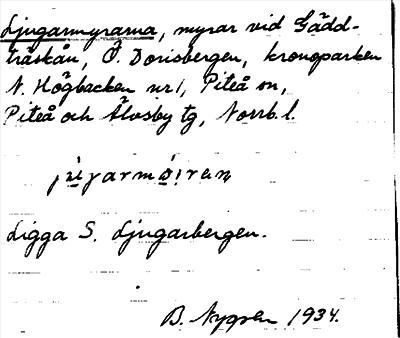 Ljugarmyrarna, myrar vid Gädd-
träskån, Ö. Dorisbergen, kronoparken
N. Högbacken nr 1, Piteå sn,
Piteå och Älvsby tg, Norrb. l.
Ligga S. Ljugarbergen.
B. Nygren 1934.